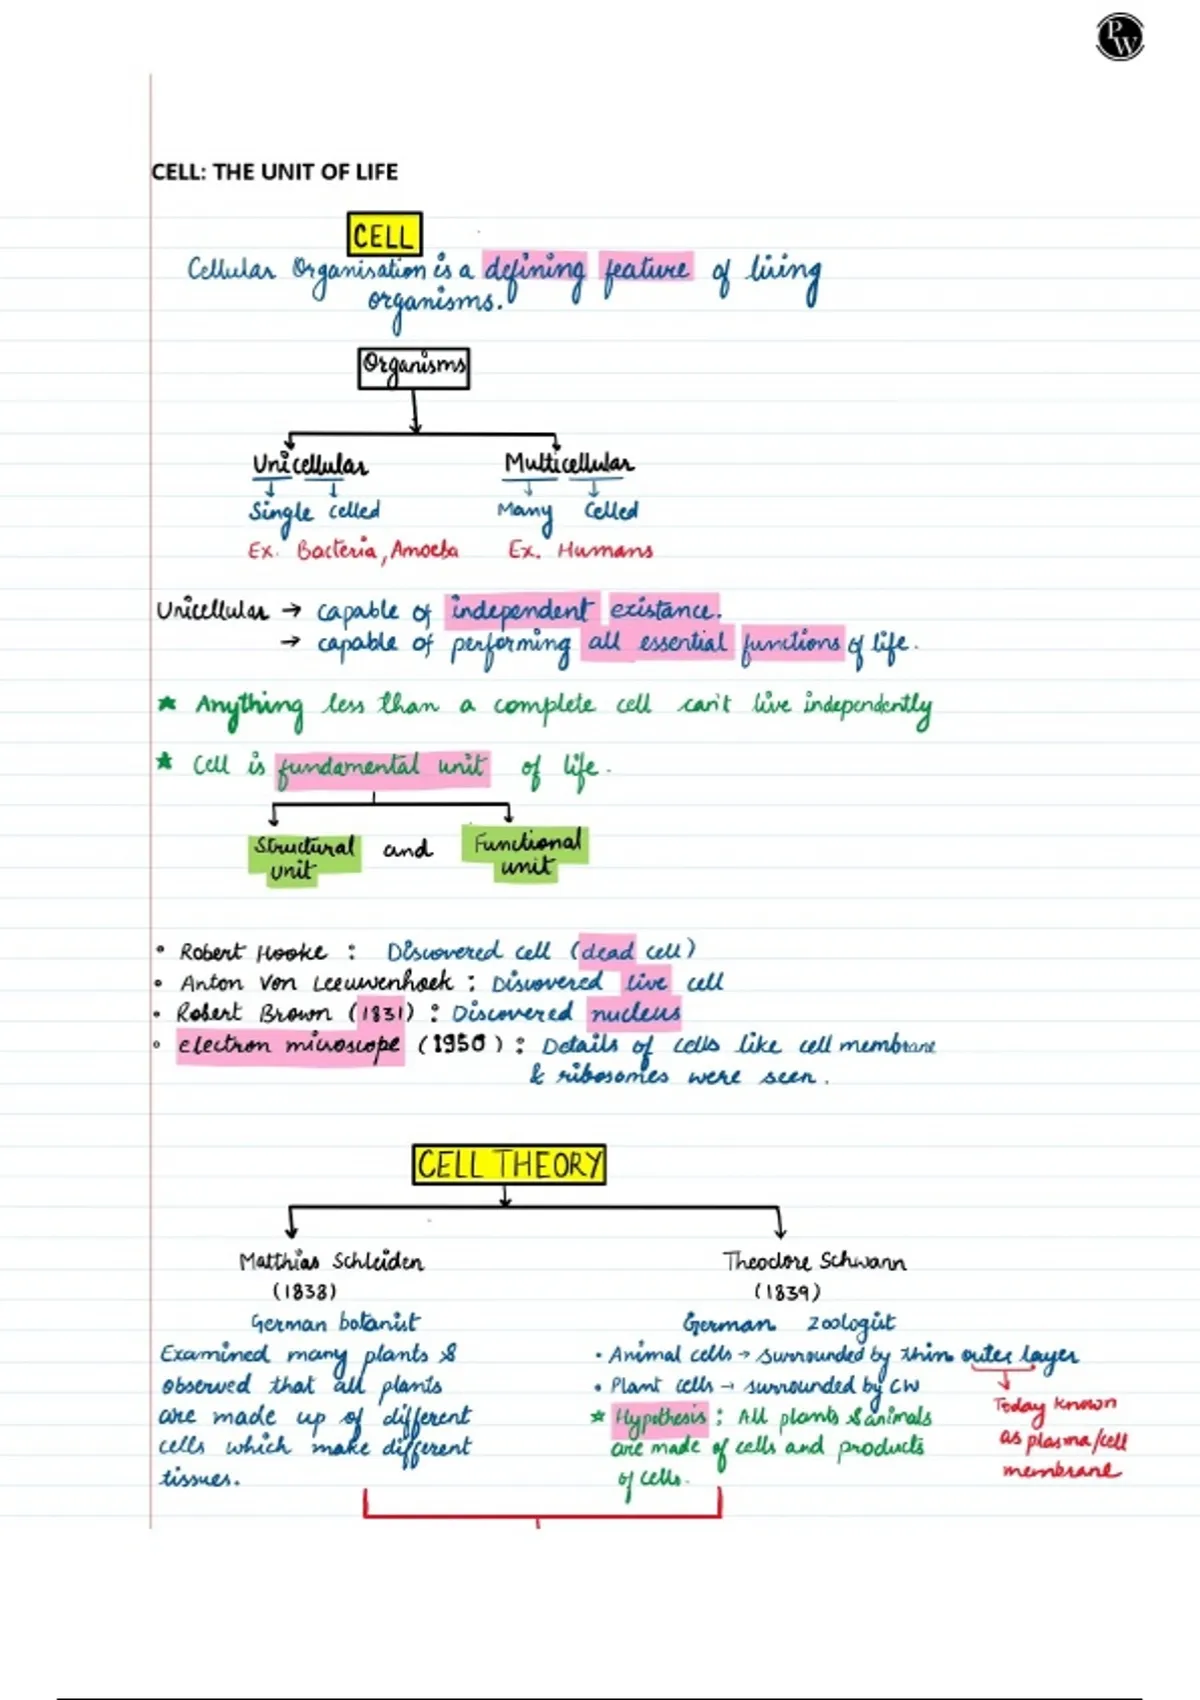 PW
CELL: THE UNIT OF LIFE
CELL
Cellular Organisation is a defining feature of living
organisms.
Organisms
Unicellular Multicellular
Single celled Many Celled
Ex. Bacteria, Amoeba Ex. Humans
Unicellular → capable of independent existance.
→ capable of performing all essential functions of life.
★ Anything less than a complete cell can't live independently
★ Cell is fundamental unit of life.
Structural and Functional
unit unit
• Robert Hooke : Discovered cell (dead cell)
• Anton Von Leeuwenhoek : Discovered live cell
• Robert Brown (1831) : Discovered nucleus
• electron microscope (1950) : Details of cells like cell membrane
& ribosomes were seen.
CELL THEORY
Matthias Schleiden Theodore Schwann
(1838) (1839)
German botanist German zoologist
Examined many plants & • Animal cells → surrounded by thin outer layer
observed that all plants • Plant cells → surrounded by CW Today known
are made up of different ★ Hypothesis : All plants & animals as plasma/cell
cells which make different are made of cells and products membrane
tissues. of cells.